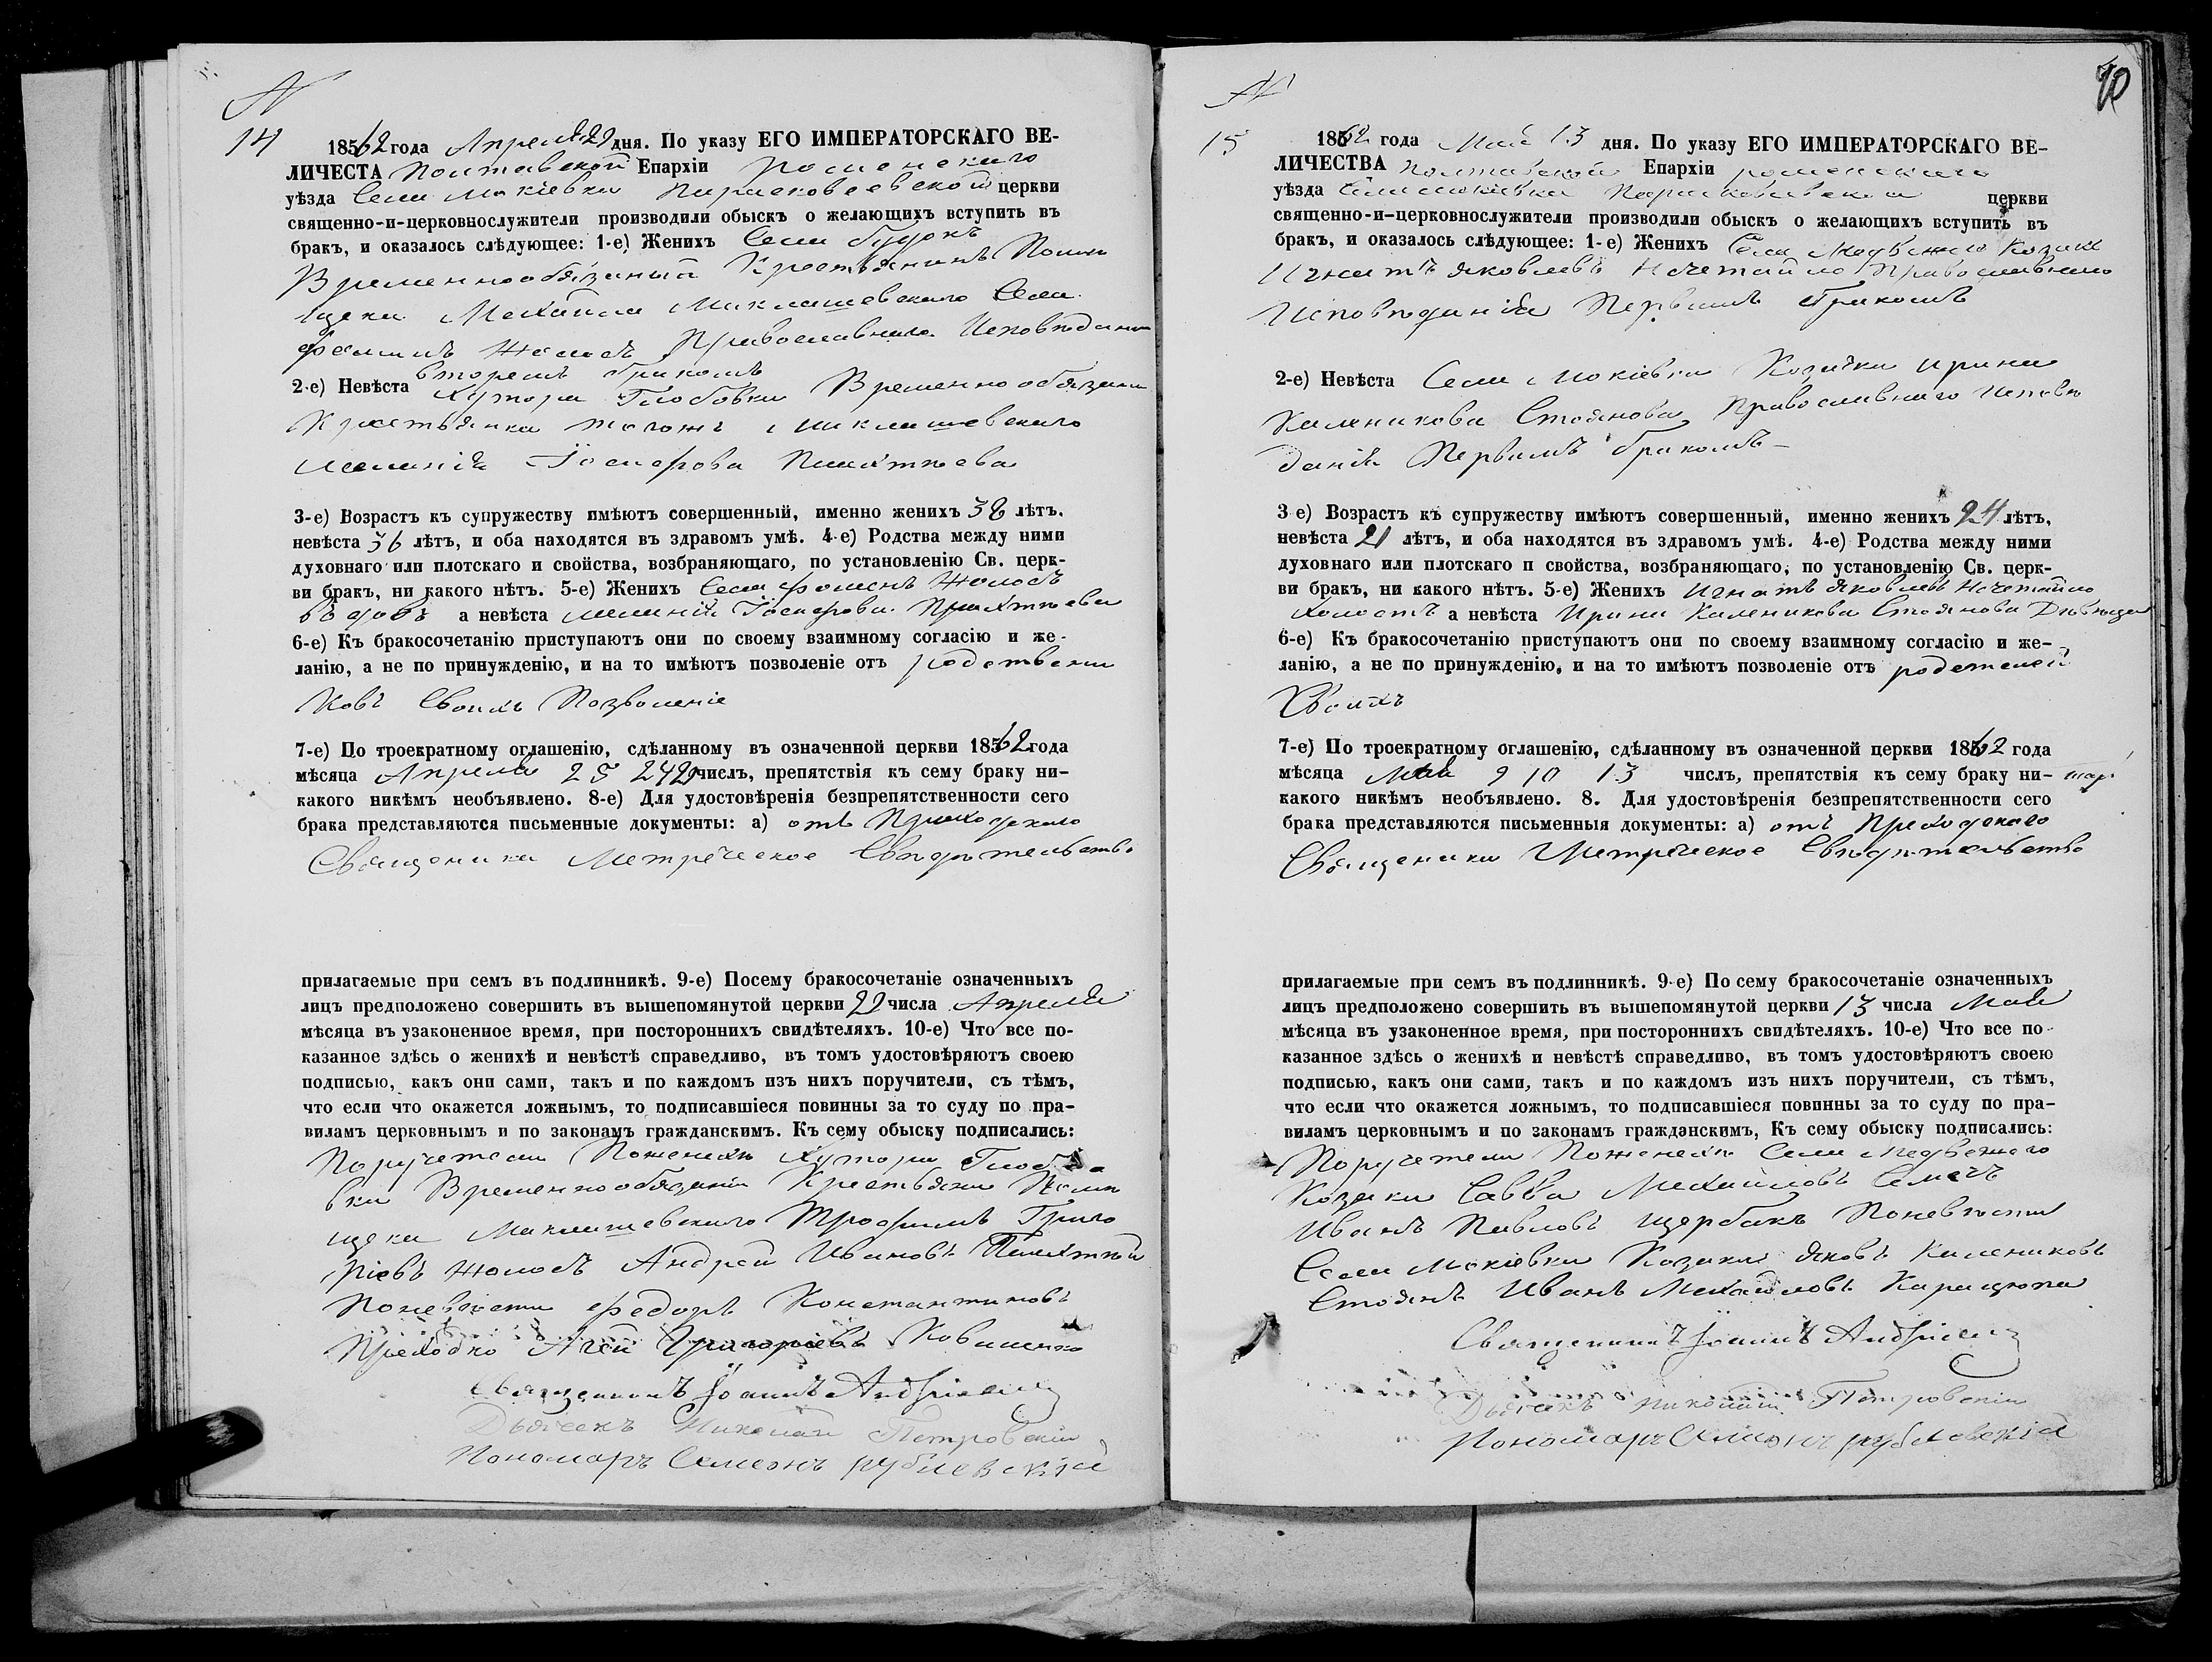 N
14
1862 года Апреля 29 дня. По указу ЕГО ИМПЕРАТОРСКАГО ВЕ-
ЛИЧЕСТА Полтавской Епархіи Роменскаго
уѣзда Села Мокіевки Парасковеевской церкви
священно-и-церковнослужители производили обыскъ о желающихъ вступить въ
бракъ, и оказалось слѣдующее: 1-е) Женихъ Села
Временнообязаный Крестьянинъ Поми
щека Михаила Миклашевскаго Села
Православнаго Исповѣдания
вторемъ бракомъ
2-е) Невѣста Хутора Глобовки Временнообязана
Крестьянка тогожъ Миклашевскаго
Меланія Іосифова
3-е) Возрастъ къ супружеству имѣютъ совершенный, именно женихъ 38 лѣтъ.
невѣста 36 лѣтъ, и оба находятся въ здравомъ умѣ. 4-е) Родства между ними
духовнаго или плотскаго и свойства, возбраняющаго, по установленію Св. церк-
ви бракъ, ни какого нѣтъ. 5-е) Женихъ
вдовъ а невѣста Меланія Іосифова
6-е) Къ бракосочетанію приступаютъ они по своему взаимному согласію и же-
ланію, а не по принужденію, и на то имѣютъ позволеніе отъ родствени
ковъ Своихъ Позволеніе
7-е) По троекратному оглашенію, сдѣланному въ означенной церкви 1862 года
мѣсяца Апреля числъ, препятствія къ сему браку ни-
какого никѣмъ необъявлено. 8-е) Для удостовѣренія безпрепятственности сего
брака представляются письменные документы: а) отъ Приходскаго
Священика Метрическое Свидѣтельство
прилагаемые при семъ въ подлинникѣ. 9-е) Посему бракосочетаніе означенныхъ
лицъ предположено совершить въ вышепомянутой церкви 29 числа Апреля
мѣсяца въ узаконенное время, при постороннихъ свидѣтеляхъ. 10-е) Что все по-
казанное здѣсь о женихѣ и невѣстѣ справедливо, въ томъ удостовѣряютъ своею
подписью, какъ они сами, такъ и по каждомъ изъ нихъ поручители, съ тѣмъ,
что если что окажется ложнымъ, то подписавшіеся повинны за то суду по пра-
виламъ церковнымъ и по законамъ гражданскимъ. Къ сему обыску подписались:
Поручетели Поженихи Хутора Глобо
вки Временнообязани Крестьяни Поми
щека Миклашевскаго Трофимъ Григо
ріевъ Андрей Ивановъ
Поневѣсти Федоръ Константиновъ
Приходко Григоріевъ
Священникъ Іоаннъ Андріевъ
Дьячекъ Николай Петровскій
Пономаръ Семіонъ Рублевскій
N
70
15
1862 года Мая 13 дня. По указу ЕГО ИМПЕРАТОРСКАГО ВЕ-
ЛИЧЕСТВА Полтавской Епархіи роменскаго
уѣзда Села Мокіевки Параскевіевской церкви
священно-и-церковнослужители производили обыскъ о желающихъ вступить въ
бракъ, и оказалось слѣдующее: 1-е) Женихъ Села Медвежаго Козакъ
Игнатъ Яковлевъ Нечетайло Православнаго
Исповѣданія Первимъ бракомъ
2-е) Невѣста Села Мокіевки Козачка Ирина
Каленикова Стоянова Православнаго Исповѣ
данія Первимъ бракомъ
3 е) Возрастъ къ супружеству имѣютъ совершенный, именно женихъ 24 лѣтъ,
невѣста 21 лѣтъ, и оба находятся въ здравомъ умѣ. 4-е) Родства между ними
духовнаго или плотскаго и свойства, возбраняющаго, по установленію Св. церк-
ви бракъ, ни какого нѣтъ. 5-е) Женихъ Игнатъ Яковлевъ Нечетайло
холостъ а невѣста Ирина Каленикова Стоянова Дѣвица
6-е) Къ бракосочетанію приступаютъ они по своему взаимному согласію и же-
ланію, а не по принужденію, и на то имѣютъ позволеніе отъ родетелей
Своихъ
7-е) По троекратному оглашенію, сдѣланному въ означенной церкви 1862 года
мѣсяца Мая 9 10 13 числъ, препятствія къ сему браку ни-
какого никѣмъ необъявлено. 8. Для удостовѣренія безпрепятственности сего
брака представляются письменныя документы: а) отъ Преходскаго
Священика Метрическое Свидѣтельство
прилагаемые при семъ въ подлинникѣ. 9-е) По сему бракосочетаніе означенныхъ
лицъ предположено совершить въ вышепомянутой церкви 13 числа Мая
мѣсяца въ узаконенное время, при постороннихъ свидѣтеляхъ. 10-е) Что все по-
казанное здѣсь о женихѣ и невѣстѣ справедливо, въ томъ удостовѣряютъ своею
подписью, какъ они сами, такъ и по каждомъ изъ нихъ поручители, съ тѣмъ,
что если что окажется ложнымъ, то подписавшіеся повинны за то суду по пра-
виламъ церковнымъ и по законамъ гражданскимъ, Къ сему обыску подписались:
Поручетели Поженехи Села Медвежаго
Козаки Савва Михайловъ
Иванъ Павловъ Щербакъ Поневѣсти
Села Мокіевки Козаки Яковъ Калениковъ
Стоянъ Иванъ Михайловъ Карацюпа
Священникъ Іоаннъ Андріевъ
Дьячекъ Николай Петровскій
Пономаръ Семіонъ Рублевскій